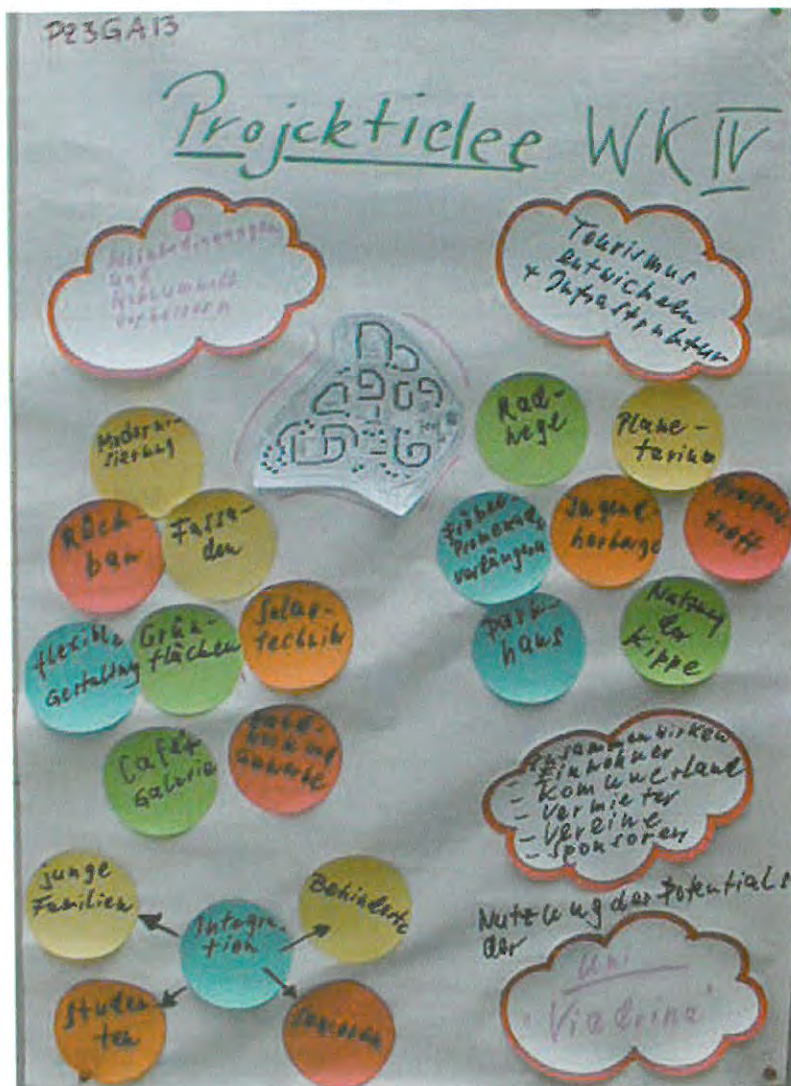 P23GA13
Projektidee WK IV
Wohnbedingungen
und
Wohnumwelt
verbessern
Tourismus
entwickeln
+ Infrastruktur
Moderni-
sierung
Rück-
bau
Fassa-
den
flexible
Gestaltung
Grün-
flächen
Solar-
technik
Café+
Galerie
Rad-
wege
Plane-
tarium
Promenade
verlängern
Jugend-
herberge
treff
Park-
haus
Nutzung
der
Kippe
Zusammenwirken
- Einwohner
- Kommune+Land
- Vermieter
- Vereine
- Sponsoren
junge
Familien
Integra-
tion
Behinderte
Studen-
ten
Senioren
Nutzung des Potentials
der
Uni
"Viadrina"